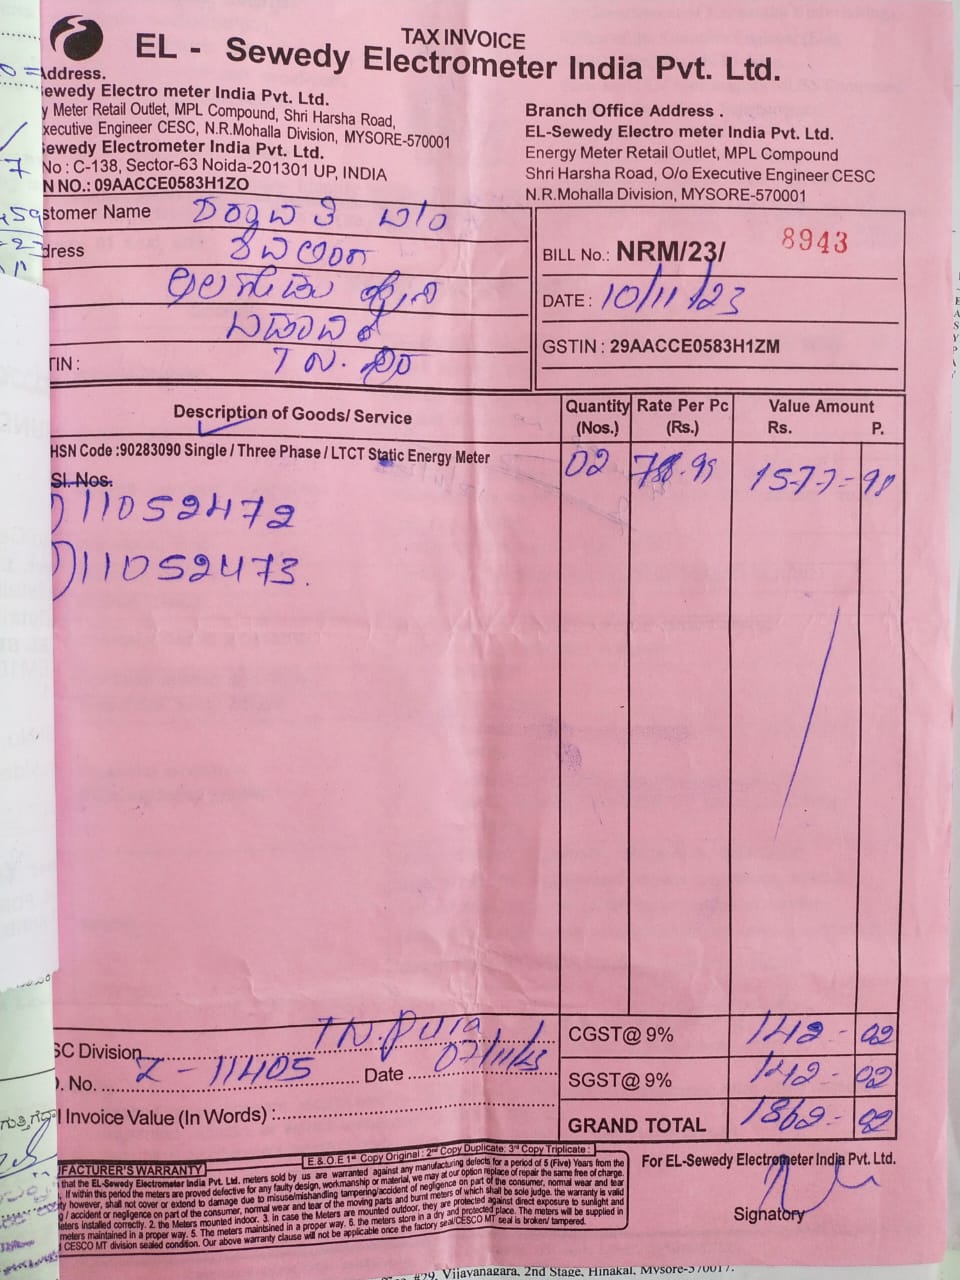 TAX INVOICE
EL - Sewedy Electrometer India Pvt. Ltd.
Address.
ewedy Electro meter India Pvt. Ltd.
y Meter Retail Outlet, MPL Compound, Shri Harsha Road,
xecutive Engineer CESC, N.R.Mohalla Division, MYSORE-570001
ewedy Electrometer India Pvt. Ltd.
No : C-138, Sector-63 Noida-201301 UP, INDIA
N NO.: 09AACCE0583H1ZO
Branch Office Address .
EL-Sewedy Electro meter India Pvt. Ltd.
Energy Meter Retail Outlet, MPL Compound
Shri Harsha Road, O/o Executive Engineer CESC
N.R.Mohalla Division, MYSORE-570001
stomer Name
dress
TIN :
BILL No.: NRM/23/ 8943
DATE : 10/11/23
GSTIN : 29AACCE0583H1ZM
Description of Goods/ Service Quantity (Nos.) Rate Per Pc (Rs.) Value Amount Rs. P.
HSN Code :90283090 Single / Three Phase / LTCT Static Energy Meter 02 788.99 1577=98
Sl. Nos.
) 11052472
) 11052473.
SC Division T.N.Pura
). No. Z-11405 Date 07/11/23
l Invoice Value (In Words) :
CGST@ 9% 142-02
SGST@ 9% 142-02
GRAND TOTAL 1862-02
E.&.O.E 1st Copy Original : 2nd Copy Duplicate: 3rd Copy Triplicate :
UFACTURER'S WARRANTY
that the EL-Sewedy Electrometer India Pvt. Ltd. meters sold by us are warranted against any manufacturing defects for a period of 5 (Five) Years from the
. If within this period the meters are proved defective for any faulty design, workmanship or material, we may at our option replace of repair the same free of charge.
ty however, shall not cover or extend to damage due to misuse/mishandling tampering/accident of negligence on part of the consumer, normal wear and tear
g / accident or negligence on part of the consumer, normal wear and tear of the moving parts and burnt meters of which shall be sole judge. the warranty is valid
eters installed correctly. 2. the Meters mounted indoor. 3. in case the Meters are mounted outdoor, they are protected against direct exposure to sunlight and
meters maintained in a proper way. 5. The meters maintsined in a proper way. 6. the meters store in a dry and protected place. The meters will be supplied in
CESCO MT division sealed condition. Our above warranty clause will not be applicable once the factory seal/CESCO MT seal is broken/ tampered.
For EL-Sewedy Electrometer India Pvt. Ltd.
Signatory
#29, Vijayanagara, 2nd Stage, Hinakal, Mysore-570017.